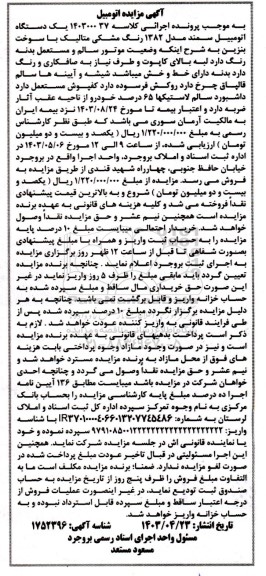 آگهی مزایده اتومبیل
به موجب پرونده اجرائی کلاسه ۱۴۰۳۰۰۰۳۷ یک دستگاه
اتومبیل سمند مدل ۱۳۸۲ رنگ مشکی متالیک با سوخت
بنزین به شرح اینکه وضعیت موتور سالم و مستعمل بدنه
رنگ دارد لبه بالای کاپوت و طرف نیاز به صافکاری و رنگ
دارد بدنه دارای خط و خش میباشد شیشه و آیینه ها سالم
قالپاق چرخ دارد روکش فرسوده دارد کفپوش مستعمل دارد
داشبورد سالم لاستیکها ۶۵ درصد خودرو از ناحیه عقب آثار
ضربه دارد و اعتبار بیمه تا مورخ ۱۴۰۳/۰۸/۲۴ نزد بیمه ایران
به مالکیت آرمان سوری می باشد که طبق نظر کارشناس
رسمی به مبلغ ۱/۲۲۰/۰۰۰/۰۰۰ ریال ( یکصد و بیست و دو میلیون
تومان ) ارزیابی شده، از ساعت ۹ الی ۱۲ مورخ ۱۴۰۳/۰۵/۰۶ در
اداره ثبت اسناد و املاک بروجرد، واحد اجرا واقع در بروجرد
خیابان حافظ جنوبی، چهارراه شهید قندی از طریق مزایده به
فروش می رسد. مزایده از مبلغ ۱/۲۲۰/۰۰۰/۰۰۰ ریال ( یکصد و
بیست و دو میلیون تومان ) شروع و به بالاترین قیمت پیشنهادی
نقداً فروخته می شد و کلیه هزینه های قانونی به عهده برنده
مزایده است همچنین نیم عشر و حق مزایده نقداً وصول
خواهد شد. خریدار احتمالی میبایست مبلغ ۱۰ درصد پایه
مزایده را به حساب ثبت واریز و همراه با مبلغ پیشنهادی
بصورت شفاهی تا قبل از ساعت ۱۲ ظهر روز برگزاری مزایده
به اجرای ثبت بروجرد اعلام نمایند. چنانچه برنده مزایده
تعیین گردد باید مابقی مبلغ را ظرف ۵ روز واریز نماید در غیر
این صورت حق خریداری سال ساقط و مبلغ سپرده شده به
حساب خزانه واریز و قابل برگشت نمی باشد چنانچه به هر
دلیل مزایده برگزار نگردد مبلغ ۱۰ درصد سپرده شده پس از
طی فرایند قانونی به واریز کننده عودت خواهد شد . لازم به
ذکر است پرداخت بدهیهای قانونی به عهده برنده مزایده
است و نیز در صورت وجود مازاد وجوه پرداختی بابت هزینه
های فوق از محل مازاد به برنده مزایده مسترد خواهد شد و
نیم عشر و حق مزایده نقداً وصول می گردد و چنانچه احدی
خواهان شرکت در مزایده باشد میبایست مطابق ۱۳۶ آیین نامه
اجرا ده درصد مبلغ پایه کارشناسی مزایده را بحساب بانک
مرکزی به نام وجوه تمرکز سپرده اداره کل ثبت اسناد و املاک
لرستان به شماره:
واریز: سپرده نموده و خود
یا نماینده قانونی اش در جلسه مزایده شرکت نماید. همچنین
این اجرا مسئولیتی در قبال تاخیر عودت مبلغ پرداخت شده در
صورت لغو مزایده ندارد. ضمنا: برنده مزایده مکلف است ما به
التفاوت مبلغ فروش را ظرف پنج روز از تاریخ مزایده به حساب
صندوق ثبت تودیع نماید، در غیر اینصورت عملیات فروش از
درجه اعتبار ساقط و مبلغ سپرده قابل استرداد نبوده و به
حساب خزانه واریز خواهد شد.
تاریخ انتشار: ۱۴۰۳/۰۴/۲۳ شناسه آگهی: ۱۷۵۲۳۹۶
مسئول واحد اجرای اسناد رسمی بروجرد
مسعود مستعد